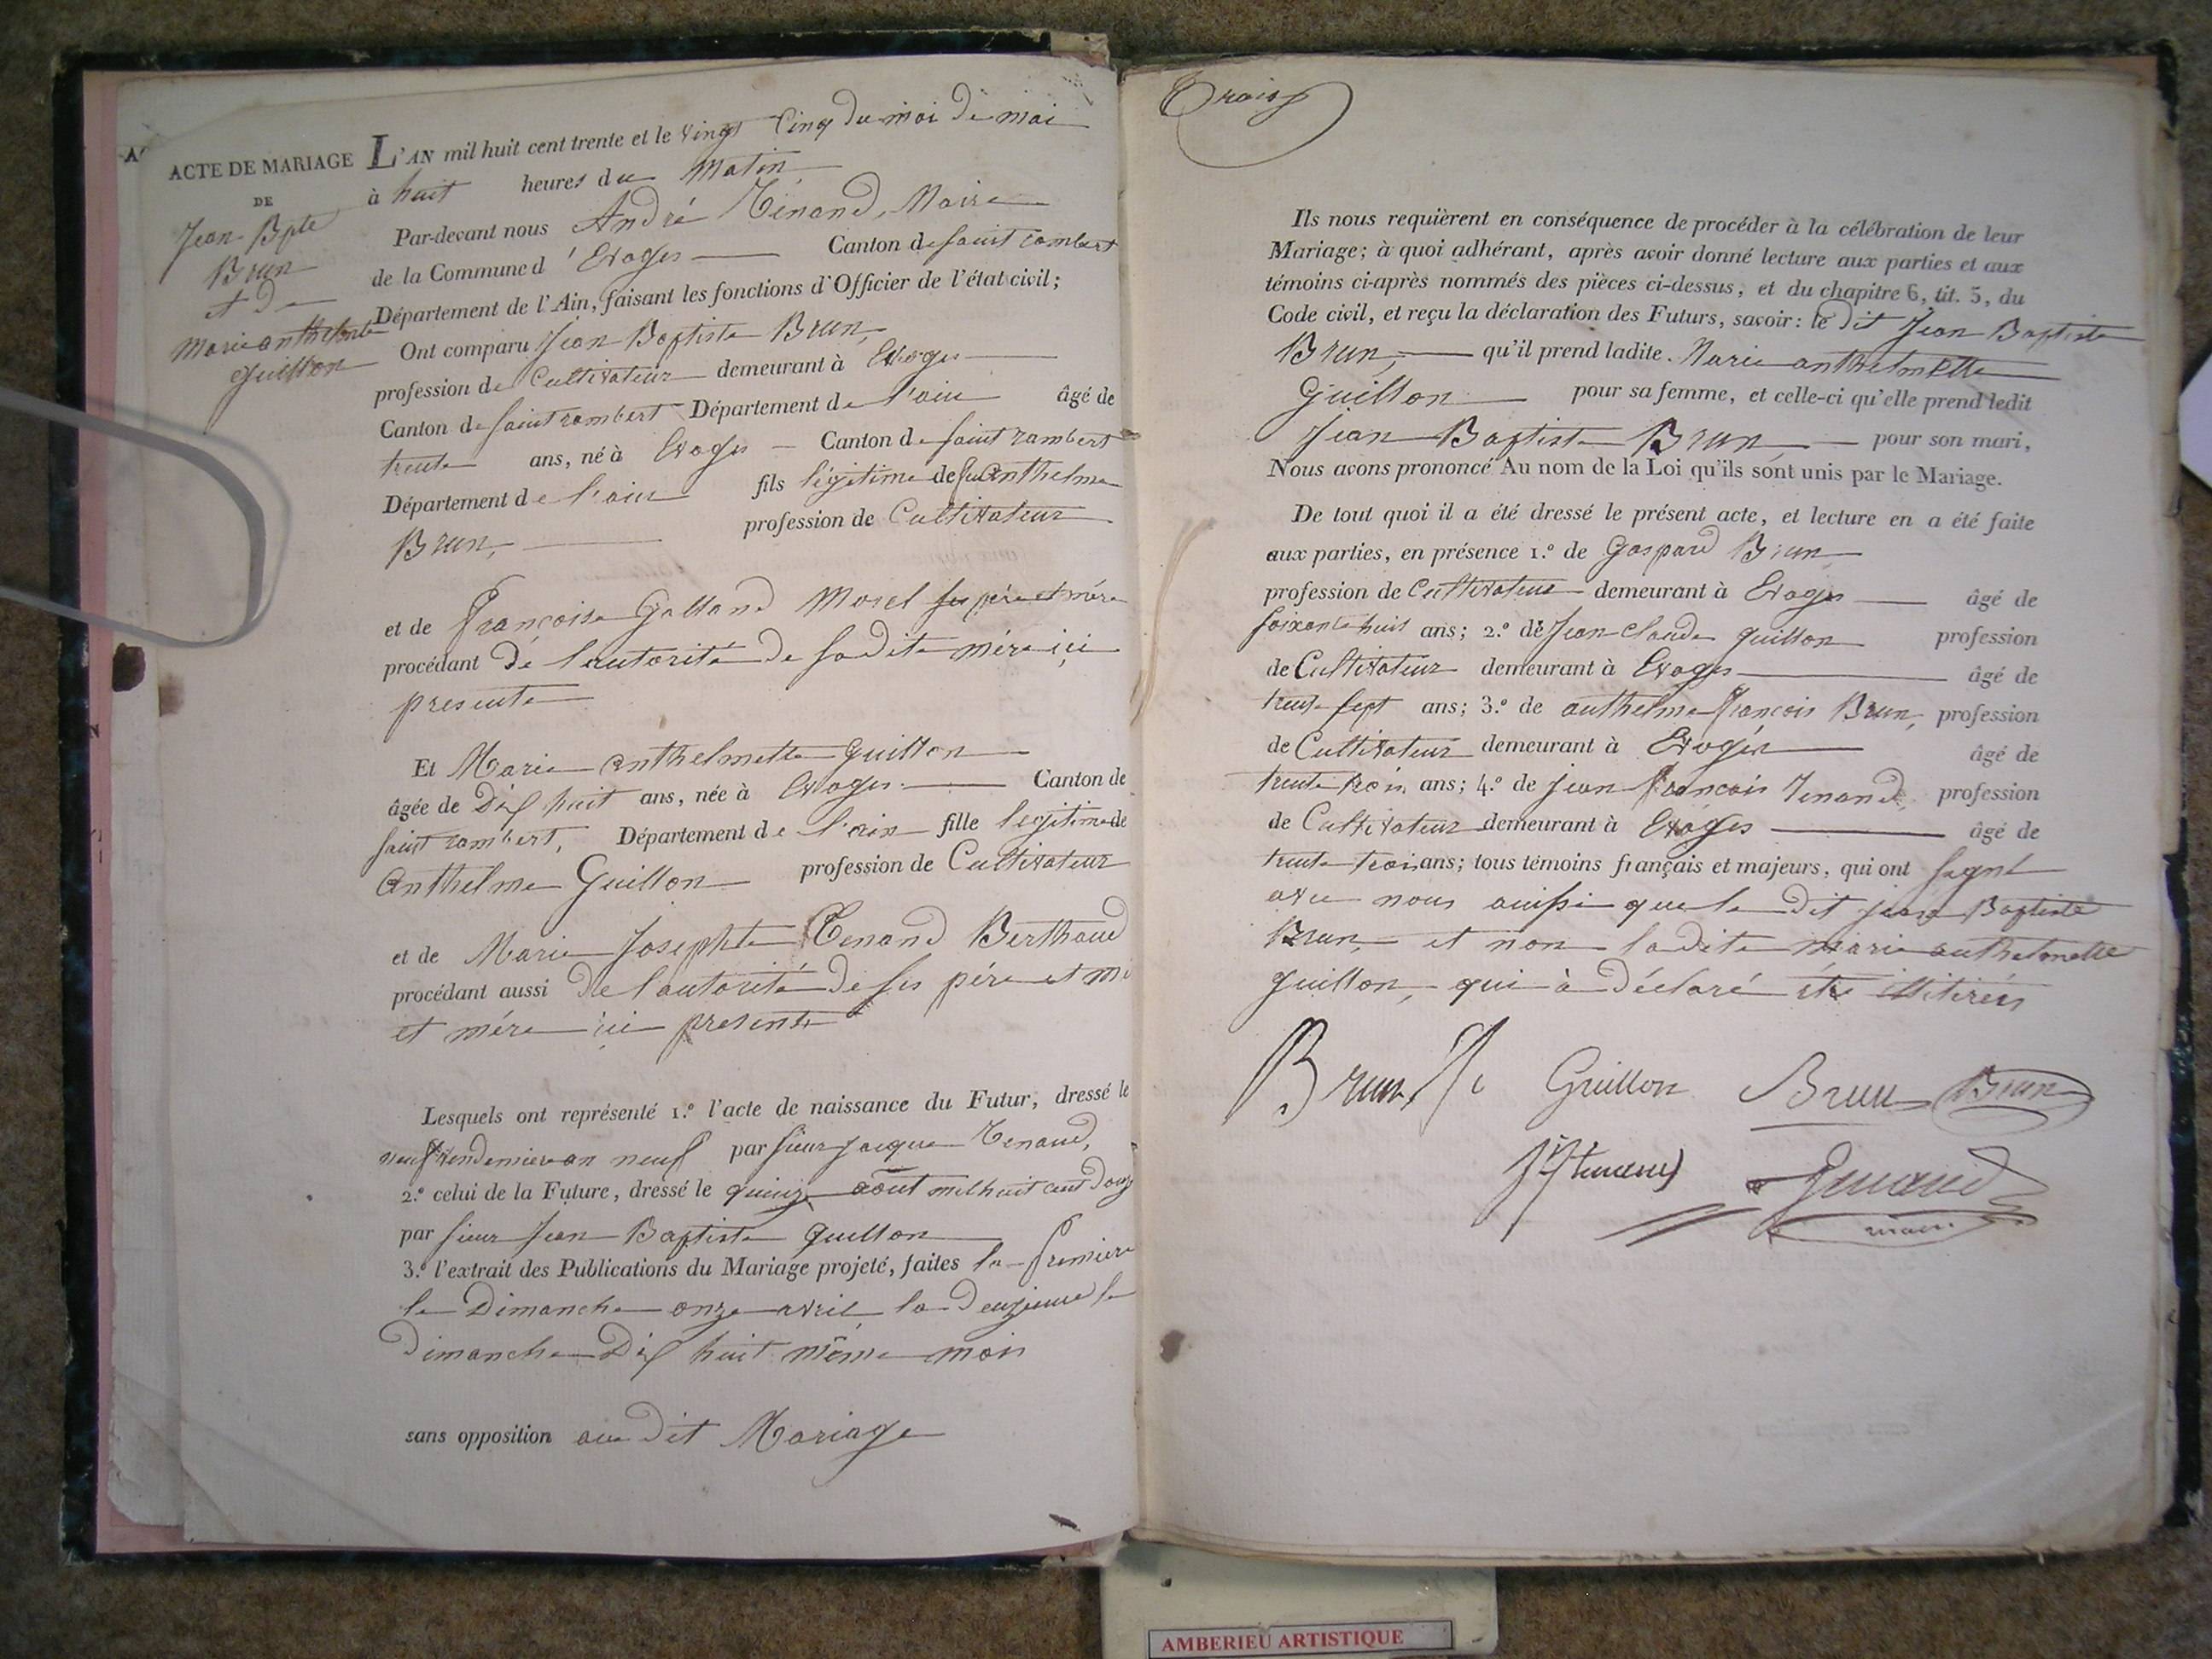 ACTE DE MARIAGE
DE
Jean Bpte
Brun
et de
Marie anthelmette
Guillon
L'AN mil huit cent trente et le vingt Cinq du moi de mai
à huit heures du Matin
Par-devant nous André Ténand, Maire
de la Commune d'Evoges Canton de saint rambert
Département de l'Ain, faisant les fonctions d'Officier de l'état civil;
Ont comparu Jean Baptiste Brun,
profession de Cultivateur demeurant à Evoges
Canton de saint rambert Département de l'ain âgé de
trente ans, né à Evoges Canton de saint rambert
Département de l'ain fils légitime de feu anthelme
Brun, profession de Cultivateur
et de françoise Galland Morel ses père et mère
procédant de l'autorité de sadite mère ici
presente
Et Marie anthelmette Guillon
âgée de Dix huit ans, née à Evoges Canton de
saint rambert, Département de l'ain fille legitime de
Anthelme Guillon profession de Cultivateur
et de Marie Josephte Tenand Berthaud
procédant aussi de l'autorité de ses père et mè
et mère ici presents
Lesquels ont représenté 1.º l'acte de naissance du Futur, dressé le
neuf vendemiere an neuf par sieur jacque Tenand,
2.º celui de la Future, dressé le quinze août mil huit cent douze
par sieur Jean Baptiste Guillon
3.º l'extrait des Publications du Mariage projeté, faites la premiere
le Dimanche onze avril, la deuzieme le
Dimanche Dix huit même mois
sans opposition au dit Mariage
Trois
Ils nous requièrent en conséquence de procéder à la célébration de leur
Mariage; à quoi adhérant, après avoir donné lecture aux parties et aux
témoins ci-après nommés des pièces ci-dessus, et du chapitre 6, tit. 5, du
Code civil, et reçu la déclaration des Futurs, savoir: le dit Jean Baptiste
Brun, qu'il prend ladite Marie anthelmette
Guillon pour sa femme, et celle-ci qu'elle prend ledit
Jean Baptiste Brun, pour son mari,
Nous avons prononcé Au nom de la Loi qu'ils sont unis par le Mariage.
De tout quoi il a été dressé le présent acte, et lecture en a été faite
aux parties, en présence 1.º de Gaspard Brun
profession de Cultivateur demeurant à Evoges âgé de
soixante huit ans; 2.º de Jean Claude Guillon profession
de Cultivateur demeurant à Evoges âgé de
trente sept ans; 3.º de anthelme françois Brun, profession
de Cultivateur demeurant à Evoges âgé de
trente trois ans; 4.º de Jean françois Tenand, profession
de Cultivateur demeurant à Evoges âgé de
trente trois ans; tous témoins français et majeurs, qui ont signé
avec nous ainssi que le dit jean Baptiste
Brun, et non ladite marie anthelmette
Guillon, qui à déclaré être illitirées
Brun Guillon Brun Brun
Tenand
maire
AMBERIEU ARTISTIQUE